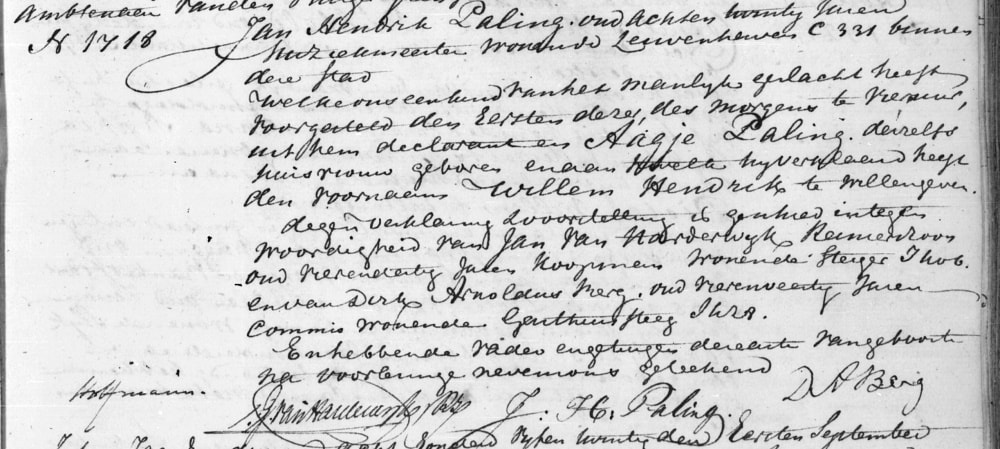 Ambtenaar vanden
N 1718 Jan Hendrik Paling. oud achten twintig Jaren
Muziekmeester wonende Leuvenhaven C 331 binnen
deze stad
Welke ons een kind van het manlyk geslacht heeft
voorgesteld den Eersten dezer, des morgens te vier uur,
uit hem declarant en Aagje Paling. deszelfs
huisvrouw geboren en aan hetwelk hy verklaard heeft
den voornaam Willem Hendrik te willen geven.
degen verklaring & voorstelling is geschied in tegen
woordigheid van Jan van Harderwyk Reinierszoon
oud vierendertig Jaren Koopman wonende Steiger
en van Dirk Arnoldus Berg. oud vierenveertig Jaren
Commis wonende
En hebben de vader en getuigen deze acte van geboorte
na voorlezinge nevens ons geteekend
Hoffmann. J van Harderwyk Rz J. H. Paling. D A Berg
honderd vyf en twintig den Eersten September